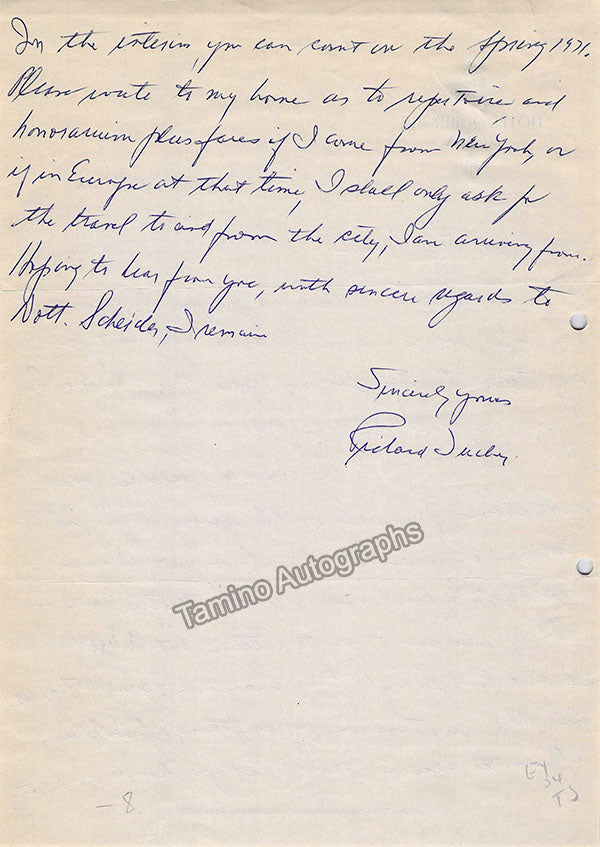 In the interim, you can count on the Spring 1971.
Please write to my home as to repertoire and
honorarium plus fares if I come from New York, or
if in Europe at that time, I shall only ask for
the travel to and from the city, I am arriving from.
Hoping to hear from you, with sincere regards to
Dott. Scheider, I remain
Sincerely yours
Richard Tucker.
Tamino Autographs
-8